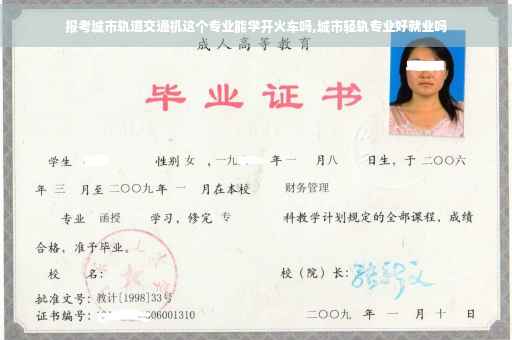 报考城市轨道交通机这个专业能学开火车吗,城市轻轨专业好就业吗
成人高等教育
毕业证书
学生 性别 女 ,一九 年 一 月 八 日生，于 二〇〇六
年 三 月至 二〇〇九 年 一 月在本校 财务管理
专业 函授 学习，修完 专 科教学计划规定的全部课程，成绩
合格，准予毕业。
校 名： 校（院）长：
批准文号：教计[1998]33号
证书编号： 606001310 二〇〇九 年 一 月 十 日